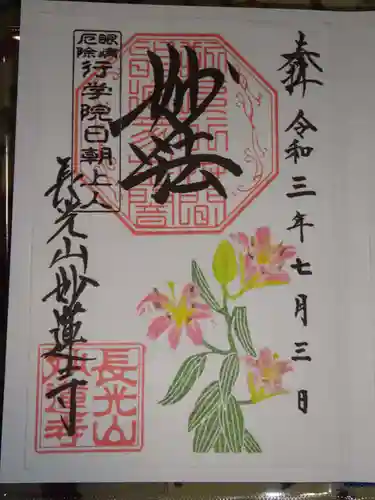 奉拝
令和三年七月三日
妙法
眼病
厄除
行学院日朝上人
長光山妙蓮寺
長光山
妙蓮寺